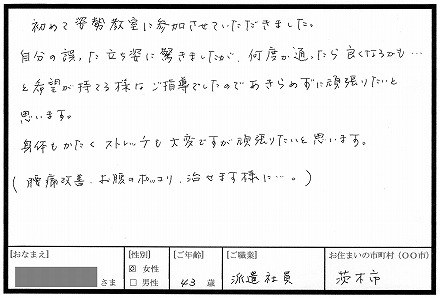 初めて姿勢教室に参加させていただきました。
自分の誤った立ち姿に驚きましたが、何度か通ったら良くなるかも…
と希望が持てる様なご指導でしたのであきらめずに頑張りたいと
思います。
身体もかたくストレッチも大変ですが頑張りたいと思います。
(腰痛改善、お腹のポッコリ、治せます様に…。)
[おなまえ] [性別] [ご年齢] [ご職業] お住まいの市町村(〇〇市)
さま ☒ 女性 □ 男性 43 歳 派遣社員 茨木市